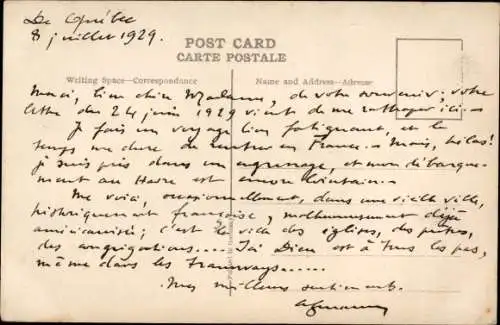 De Québec
8 juillet 1929.
POST CARD
CARTE POSTALE
Writing Space—Correspondence
Name and Address—Adresse
Merci, bien chère Madame, de votre souvenir; votre
lettre du 24 juin 1929 vient de me rattraper ici.-
Je fais un voyage bien fatiguant, et le
temps me dure de rentrer en France.- Mais, hélas!
je suis pris dans un engrenage, et mon débarque-
ment au Havre est encore lointain.-
Me voici, occasionnellement, dans une vieille ville,
historiquement française, malheureusement déjà
américanisée; c'est la ville des églises, des prêtres,
des congrégations.... Ici Dieu est à tous les pas,
même dans les tramways.....
Mes meilleurs sentiments.